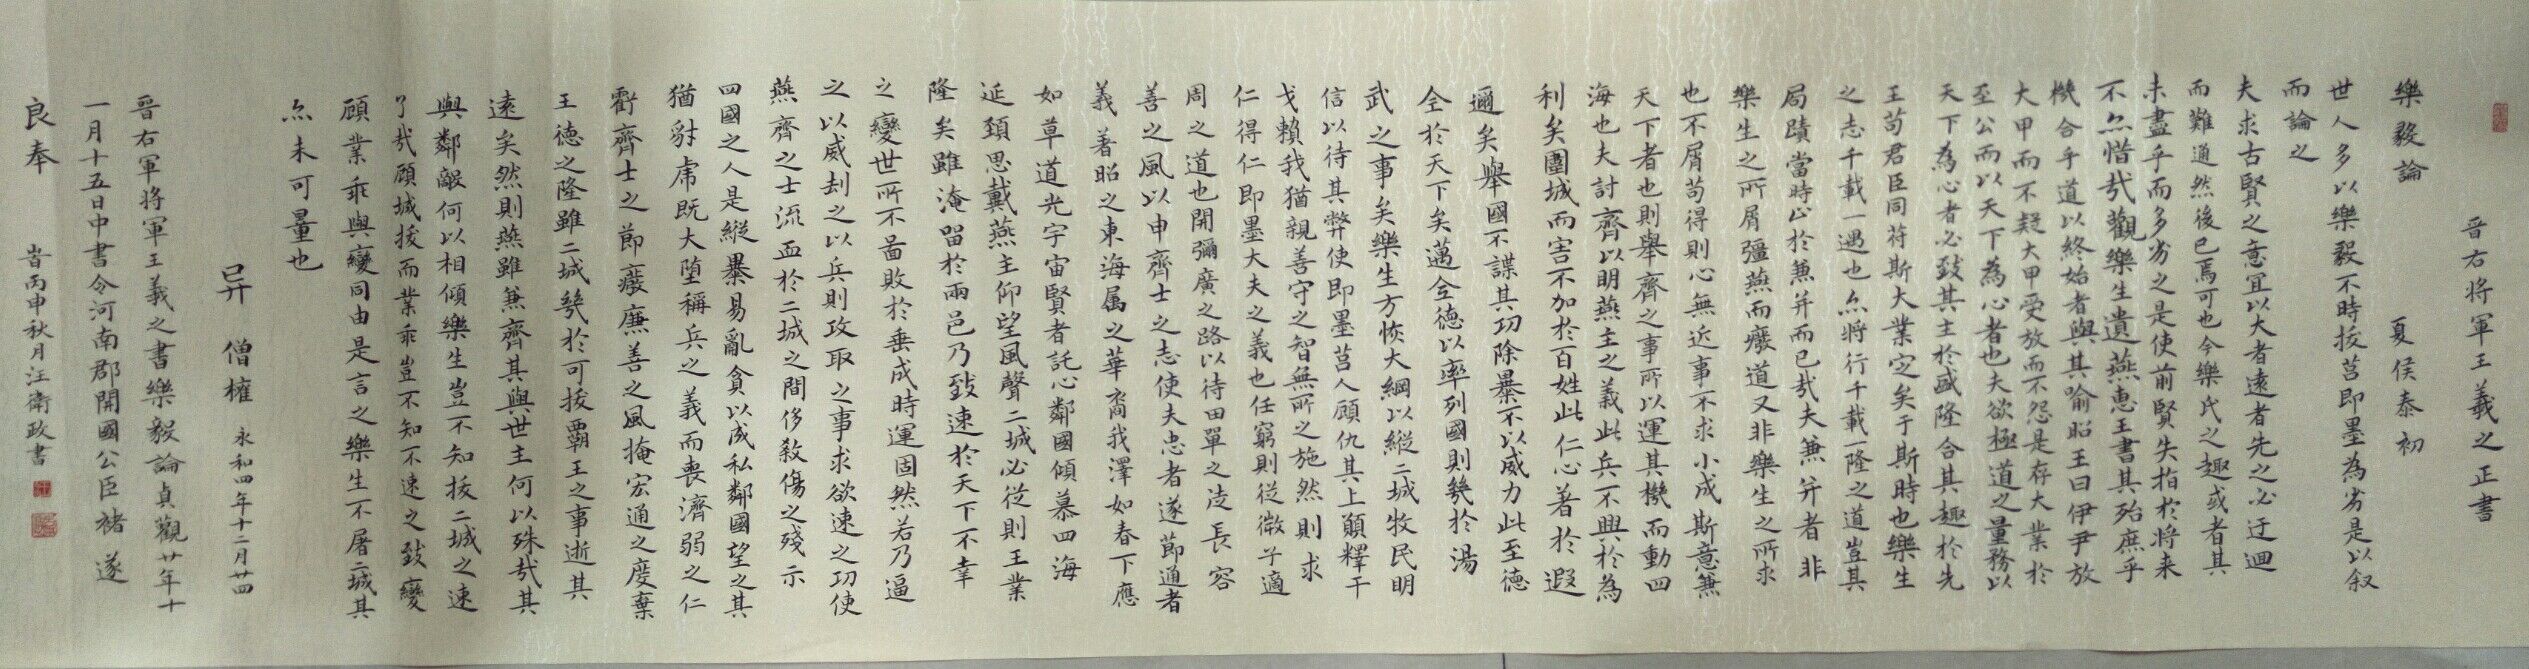 晉右將軍王羲之正書
樂毅論　夏侯泰初
世人多以樂毅不時拔莒即墨為劣是以叙
而論之
夫求古賢之意宜以大者遠者先之必迂迴
而難通然後已焉可也今樂氏之趣或者其
未盡乎而多劣之是使前賢失指於將来
不亦惜哉觀樂生遺燕惠王書其殆庶乎
機合乎道以終始者與其喻昭王曰伊尹放
大甲而不疑大甲受放而不怨是存大業於
至公而以天下為心者也夫欲極道之量務以
天下為心者必致其主於盛隆合其趣於先
王苟君臣同符斯大業定矣于斯時也樂生
之志千載一遇也亦將行千載一隆之道豈其
局蹟當時止於兼并而已哉夫兼并者非
樂生之所屑彊燕而癈道又非樂生之所求
也不屑苟得則心無近事不求小成斯意兼
天下者也則舉齊之事所以運其機而動四
海也夫討齊以明燕主之義此兵不興於為
利矣圍城而害不加於百姓此仁心著於遐
邇矣舉國不謀其功除暴不以威力此至德
全於天下矣邁全德以率列國則幾於湯
武之事矣樂生方恢大綱以縱二城牧民明
信以待其弊使即墨莒人顧仇其上願釋干
戈賴我猶親善守之智無所之施然則求
仁得仁即墨大夫之義也任窮則從微子適
周之道也開彌廣之路以待田單之徒長容
善之風以申齊士之志使夫忠者遂節通者
義著昭之東海属之華裔我澤如春下應
如草道光宇宙賢者託心鄰國傾慕四海
延頚思戴燕主仰望風聲二城必從則王業
隆矣雖淹留於兩邑乃致速於天下不幸
之變世所不圖敗於垂成時運固然若乃逼
之以威刦之以兵則攻取之事求欲速之功使
燕齊之士流血於二城之間侈殺傷之殘示
四國之人是縱暴易亂貪以成私鄰國望之其
猶豺虎既大堕稱兵之義而喪濟弱之仁
虧齊士之節癈廉善之風掩宏通之度棄
王德之隆雖二城幾於可拔霸王之事逝其
遠矣然則燕雖兼齊其與世主何以殊哉其
與鄰敵何以相傾樂生豈不知拔二城之速
了哉顧城拔而業乖豈不知不速之致變
顧業乖與變同由是言之樂生不屠二城其
亦未可量也
异　僧權　永和四年十二月廿四
晉右軍将軍王羲之書樂毅論貞觀廿年十
一月十五日中書令河南郡開國公臣褚遂
良奉　岢丙申秋月汪衛政書